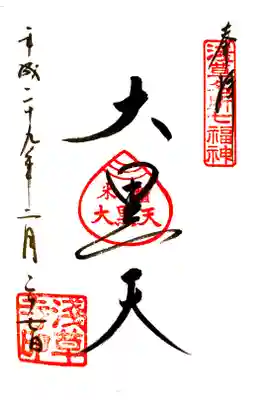 奉拝
浅草名所七福神
大黒天
米国
大黒天
平成二十九年二月二十七日
浅草寺印